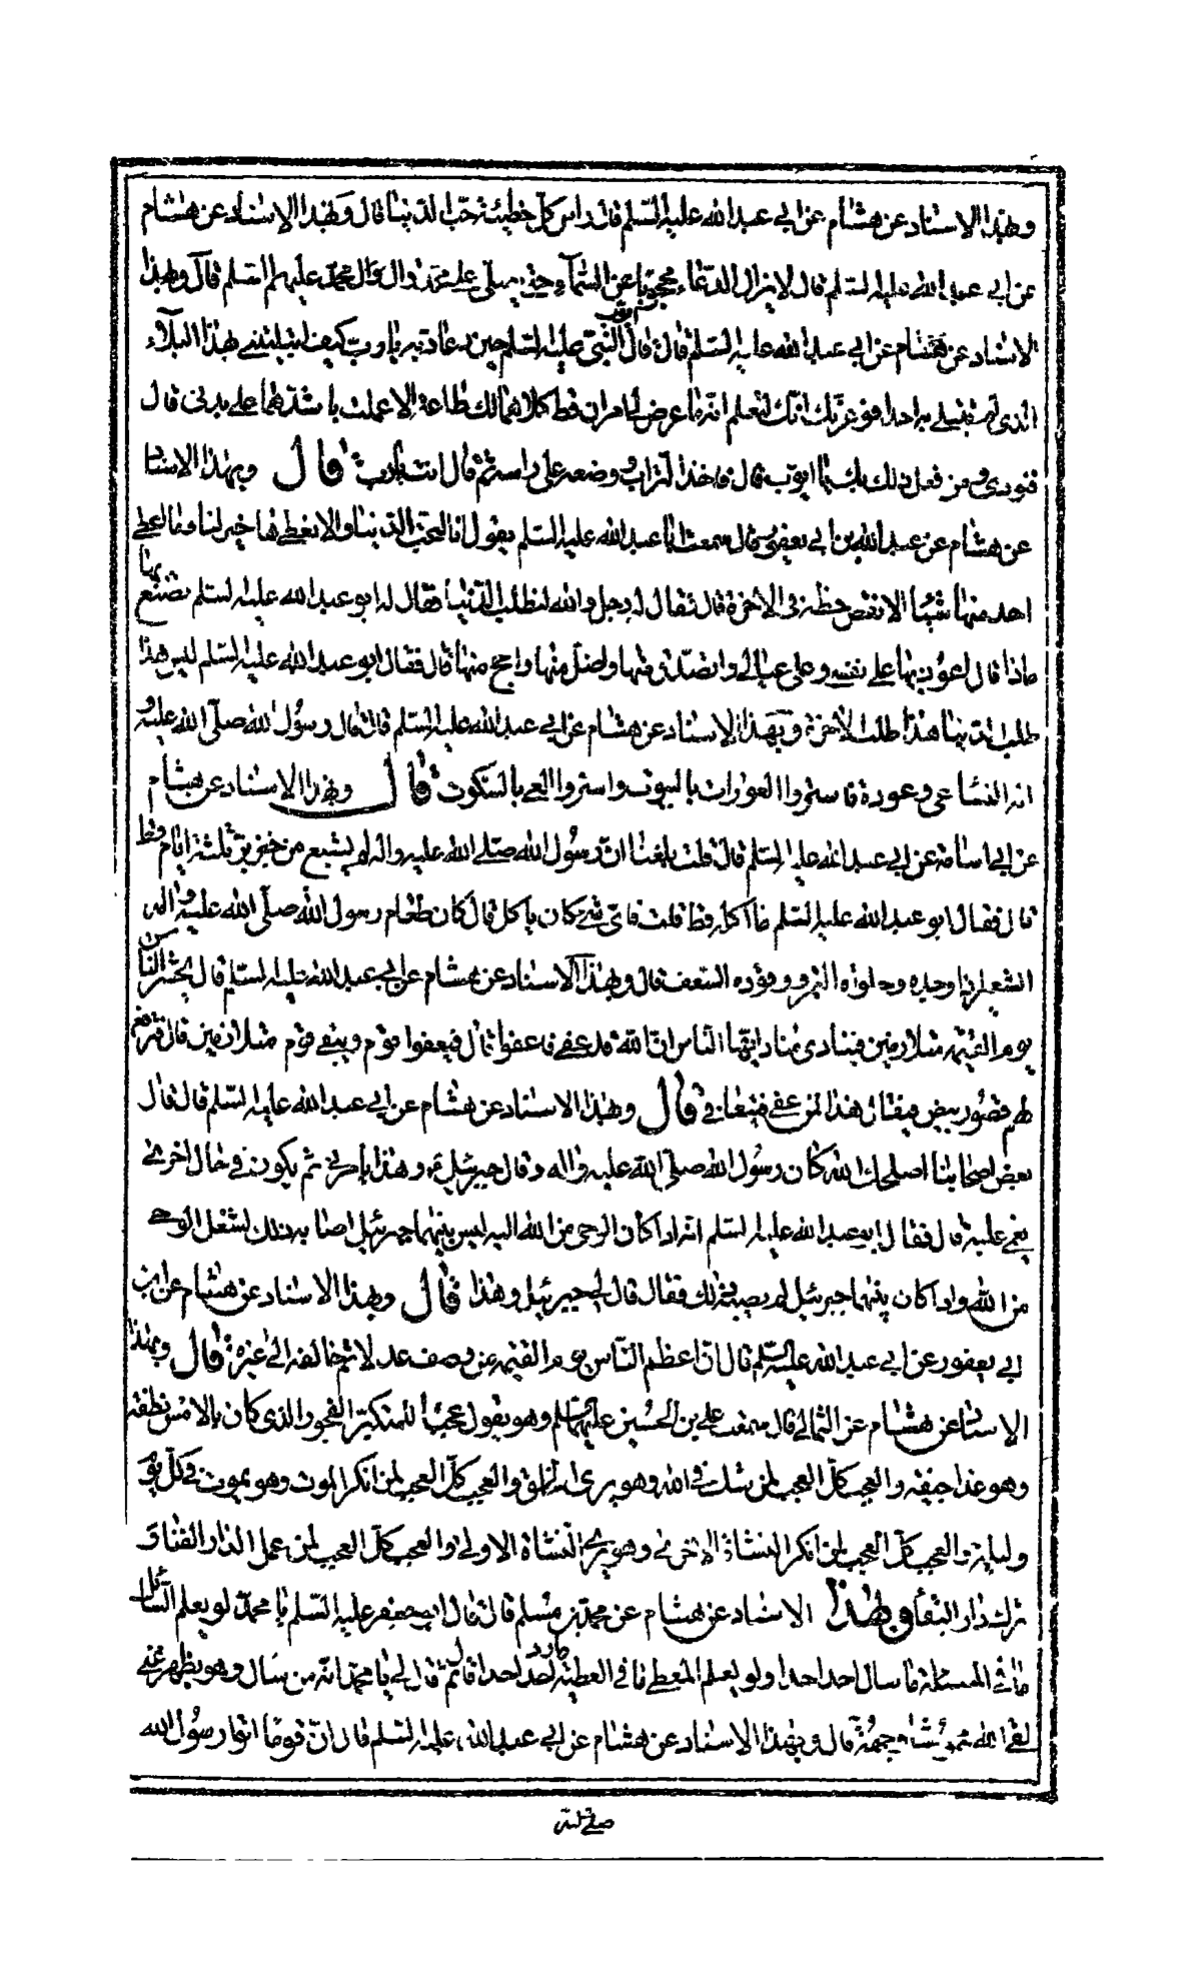 وبهذا الاسناد عن هشام عن ابي عبدالله عليه السلم قال راس كل خطيئة حب الدنيا قال وبهذا الاسناد عن هشام
عن ابي عبدالله عليه السلم قال لا يزال الدعاء محجوبا عن السماء حتى يصلى على محمد وال محمد عليهم السلم قال وبهذا
الاسناد عن هشام عن ابي عبدالله عليه السلم قال قال النبي ايوب عليه السلم حين دعا ربه يا رب كيف ابتليتني بهذا البلاء
الذي لم تبتل به احدا فوعزتك انك لتعلم انه ما عرض لي امران قط كلاهما لك طاعة الا عملت باشدهما على بدني قال
فنودي ومن فعل ذلك بك يا ايوب قال فاخذ التراب ووضعه على راسه ثم قال انت يا رب قال وبهذا الاسناد
عن هشام عن عبدالله بن ابي يعفور قال سمعت ابا عبدالله عليه السلم يقول انا لنحب الدنيا والا نعطيها خير لنا وما اعطى
احد منها شيئا الا نقص حظه في الاخرة قال فقال له رجل والله لنطلب الدنيا فقال له ابو عبدالله عليه السلم تصنع بها
ماذا قال اعود بها على نفسي وعلى عيالي واتصدق منها واصل منها واحج منها قال فقال ابو عبدالله عليه السلم ليس هذا
طلب الدنيا هذا طلب الاخرة وبهذا الاسناد عن هشام عن ابي عبدالله عليه السلم قال قال رسول الله صلى الله عليه و
اله النساء عي وعورة فاستروا العورات بالبيوت واستروا العي بالسكوت قال وبهذا الاسناد عن هشام
عن ابي اسامة عن ابي عبدالله عليه السلم قال قلت بلغنا ان رسول الله صلى الله عليه واله لم يشبع من خبز بر ثلثة ايام قط
قال فقال ابو عبدالله عليه السلم ما اكله قط قلت فاي شيء كان ياكل قال كان طعام رسول الله صلى الله عليه واله
الشعير اذا وجده وحلواه التمر ووقوده السعف قال وبهذا الاسناد عن هشام عن ابي عبدالله عليه السلم قال يحشر الناس
يوم القيمة متلازمين فينادي مناد ايها الناس ان الله قد عفى فاعفوا قال فيعفوا قوم ويبقى قوم متلازمين قال فترفع
لهم قصور بيض فيقال هذا لمن عفى فيتعافى قال وبهذا الاسناد عن هشام عن ابي عبدالله عليه السلم قال قال
بعض اصحابنا اصلحك الله كان رسول الله صلى الله عليه واله وقال جبرئيل وهذا يامرني ثم يكون في حال اخرى
يغمى عليه قال فقال ابو عبدالله عليه السلم انه اذا كان الوحي من الله اليه ليس بينهما جبرئيل اصابه ذلك لثقل الوحي
من الله واذا كان بينهما جبرئيل لم يصبه ذلك فقال قال لي جبرئيل وهذا قال وبهذا الاسناد عن هشام عن ابن
ابي يعفور عن ابي عبدالله عليه السلم قال ان اعظم الناس يوم القيمة من وصف عدلا ثم خالفه الى غيره قال وبهذا
الاسناد عن هشام عن الثمالي قال سمعت علي بن الحسين عليهما السلم وهو يقول عجبا للمتكبر الفخور الذي كان بالامس نطفة
وهو غدا جيفة والعجب كل العجب لمن شك في الله وهو يرى الخلق والعجب كل العجب لمن انكر الموت وهو يموت في كل يوم
وليلة والعجب كل العجب لمن انكر النشاة الاخرى وهو يرى النشاة الاولى والعجب كل العجب لمن عمل الدار الفناء و
ترك دار البقاء وبهذا الاسناد عن هشام عن محمد بن مسلم قال قال ابو جعفر عليه السلم يا محمد لو يعلم السائل
ما في المسئلة ما سال احد احدا ولو يعلم المعطي ما في العطية ما رد احد احدا قال ثم قال لي يا محمد انه من سال وهو بظهر غنى
لقى الله مخموشا وجهه قال وبهذا الاسناد عن هشام عن ابي عبدالله عليه السلم قال ان قوما اتوا رسول الله
صلى الله